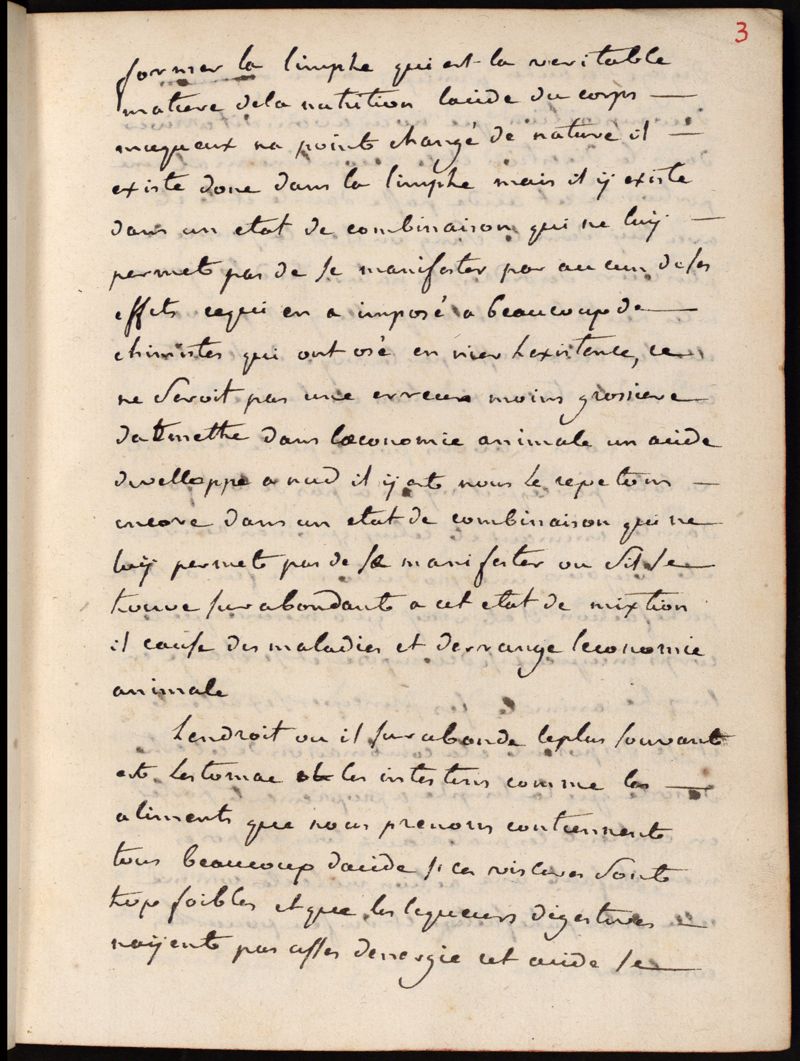 3
former la limphe qui est la veritable
matiere dela nutrition lacide du corps
muqueux na point changé de nature il
existe donc dans la limphe mais il ÿ existe
dans un etat de combinaison qui ne luÿ
permet pas de se manifester par aucun de ses
effets cequi en a imposé a beaucoup de
chimistes qui ont osé en nier lexistence, ce
ne seroit pas une erreur moins grossiere
dadmettre dans lœconomie animale un acide
dévelloppé a nud il ÿ est nous le repetons
encore dans un etat de combinaison qui ne
luÿ permet pas de se manifester ou sil se
trouve surabondant a cet etat de mixtion
il cause des maladies et derrange leconomie
animale
Lendroit ou il surabonde leplus souvant
est lestomac et les intestins comme les
aliments que nous prenons contiennent
tous beaucoup dacide si ces visceres sont
trop foibles et que les liqueurs digestives
naÿent pas asses denergie cet acide se